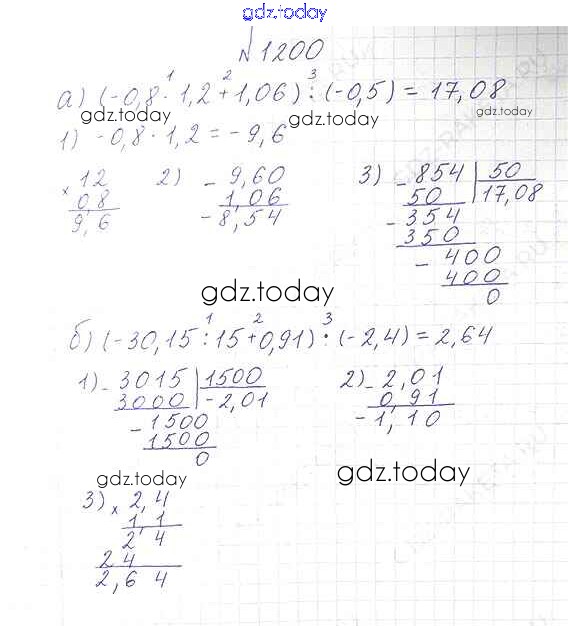 gdz.today
№1200
а) (-0,8 · 1,2 + 1,06) : (-0,5) = 17,08
gdz.today gdz.today
1) -0,8 · 1,2 = -9,6
× 12
0 8
9,6
2) - 9,60
1,06
-8,54
3) - 854 | 50
50 17,08
- 354
350
- 400
400
0
gdz.today
б) (-30,15 : 15 + 0,91) · (-2,4) = 2,64
1) - 3015 | 1500
3000 -2,01
- 1500
1500
0
2) - 2,01
0,91
-1,10
gdz.today gdz.today
3) × 2,4
1,1
2 4
2 4
2,6 4